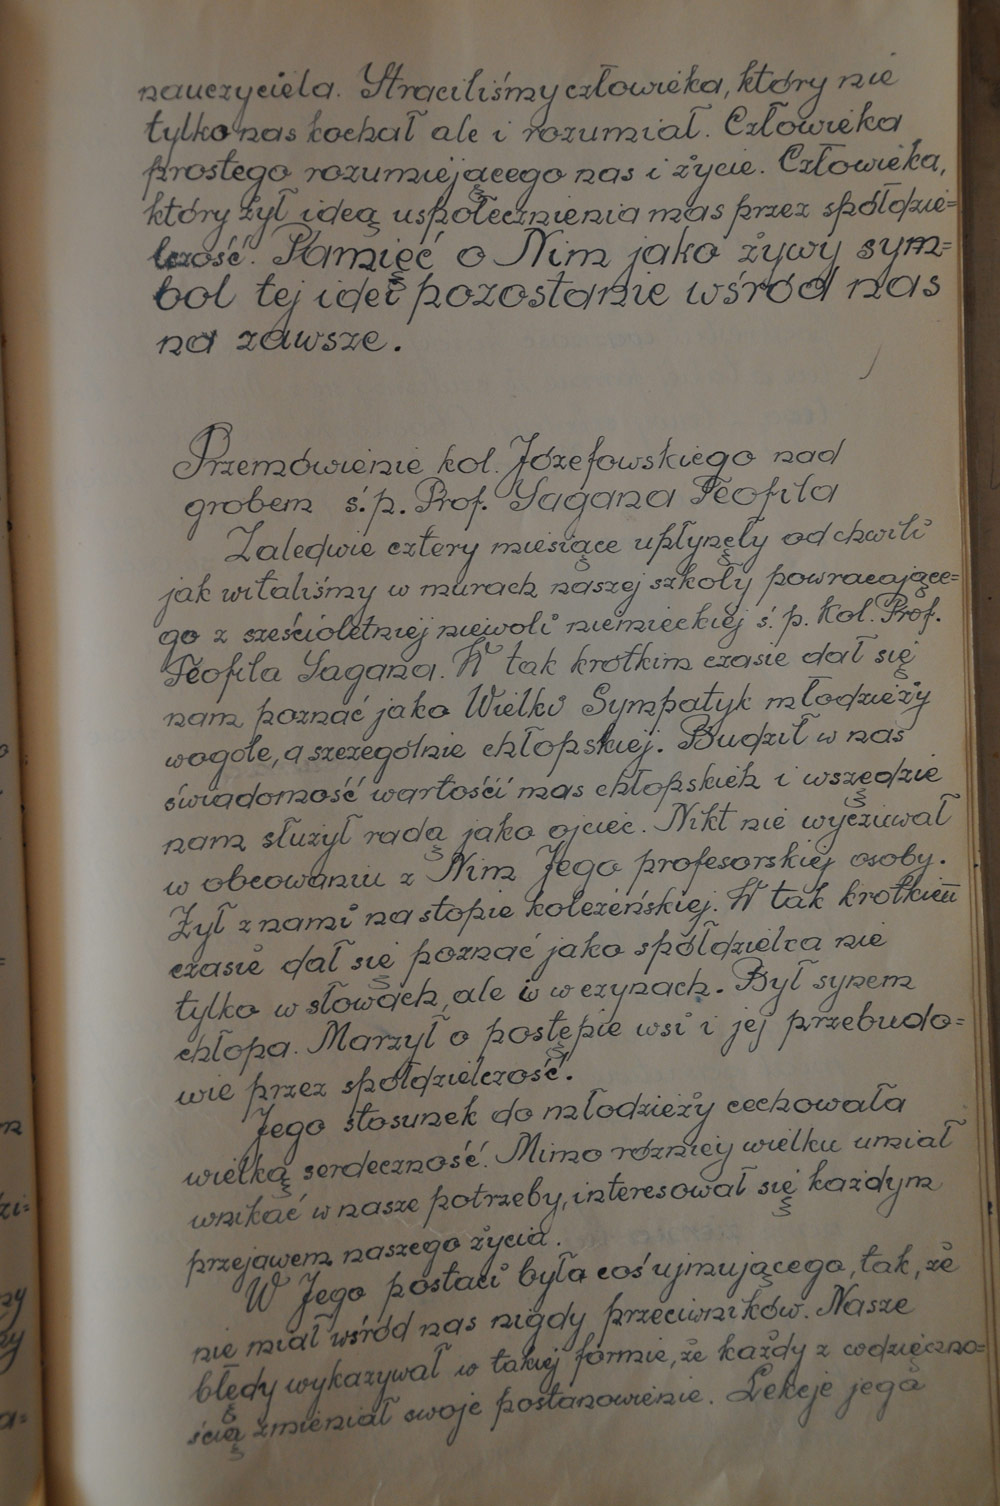 nauczyciela. Straciliśmy człowieka, który nie
tylko nas kochał ale i rozumiał. Człowieka
prostego rozumiejącego nas i życie. Człowieka,
który żył ideą uspołecznienia mas przez spółdzie=
lczość. Pamięć o Nim jako żywy sym=
bol tej idei pozostanie wśród nas
na zawsze.
Przemówienie kol. Józefowskiego nad
grobem ś.p. Prof. Sagana Teofila
Zaledwie cztery miesiące upłynęły od chwili
jak witaliśmy w murach naszej szkoły powracające=
go z sześcioletniej niewoli niemieckiej ś.p. Kol. Prof.
Teofila Sagana. W tak krótkim czasie dał się
nam poznać jako Wielki Sympatyk młodzieży
wogóle, a szczególnie chłopskiej. Budził w nas
świadomość wartości mas chłopskich i wszędzie
nam służył radą jako ojciec. Nikt nie wyczuwał
w obcowaniu z Nim Jego profesorskiej osoby.
Żył z nami na stopie koleżeńskiej. W tak krótkim
czasie dał się poznać jako spółdzielca nie
tylko w słowach, ale i w czynach. Był synem
chłopa. Marzył o postępie wsi i jej przebudo=
wie przez spółdzielczość.
Jego stosunek do młodzieży cechowała
wielką serdeczność. Mimo różnicy wielku umiał
wnikać w nasze potrzeby, interesował się każdym
przejawem naszego życia.
W Jego postaci było coś ujmującego, tak, że
nie miał wśród nas nigdy przeciwników. Nasze
błędy wykazywał w takiej formie, że każdy z wdzięczno=
ścią zmieniał swoje postanowienie. Lekcje jego